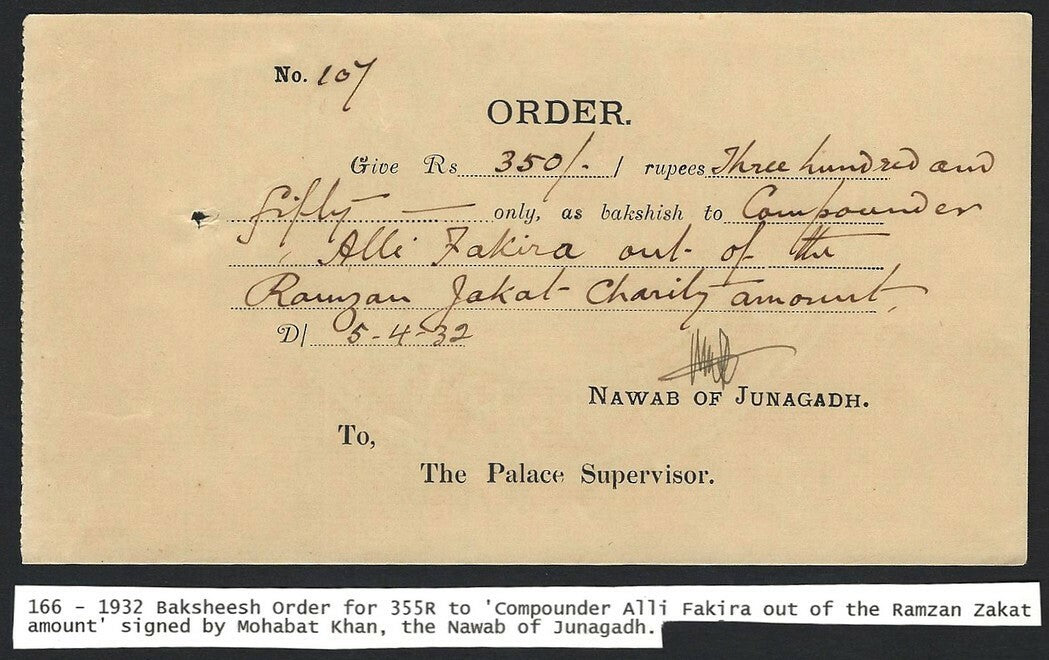 No. 107
ORDER.
Give Rs 350/- / rupees Three hundred and
fifty — only, as bakshish to Compounder
Alli Fakira out of the
Ramzan Jakat Charity amount,
D/ 5-4-32
NAWAB OF JUNAGADH.
To,
The Palace Supervisor.
166 - 1932 Baksheesh Order for 355R to 'Compounder Alli Fakira out of the Ramzan Zakat
amount' signed by Mohabat Khan, the Nawab of Junagadh.